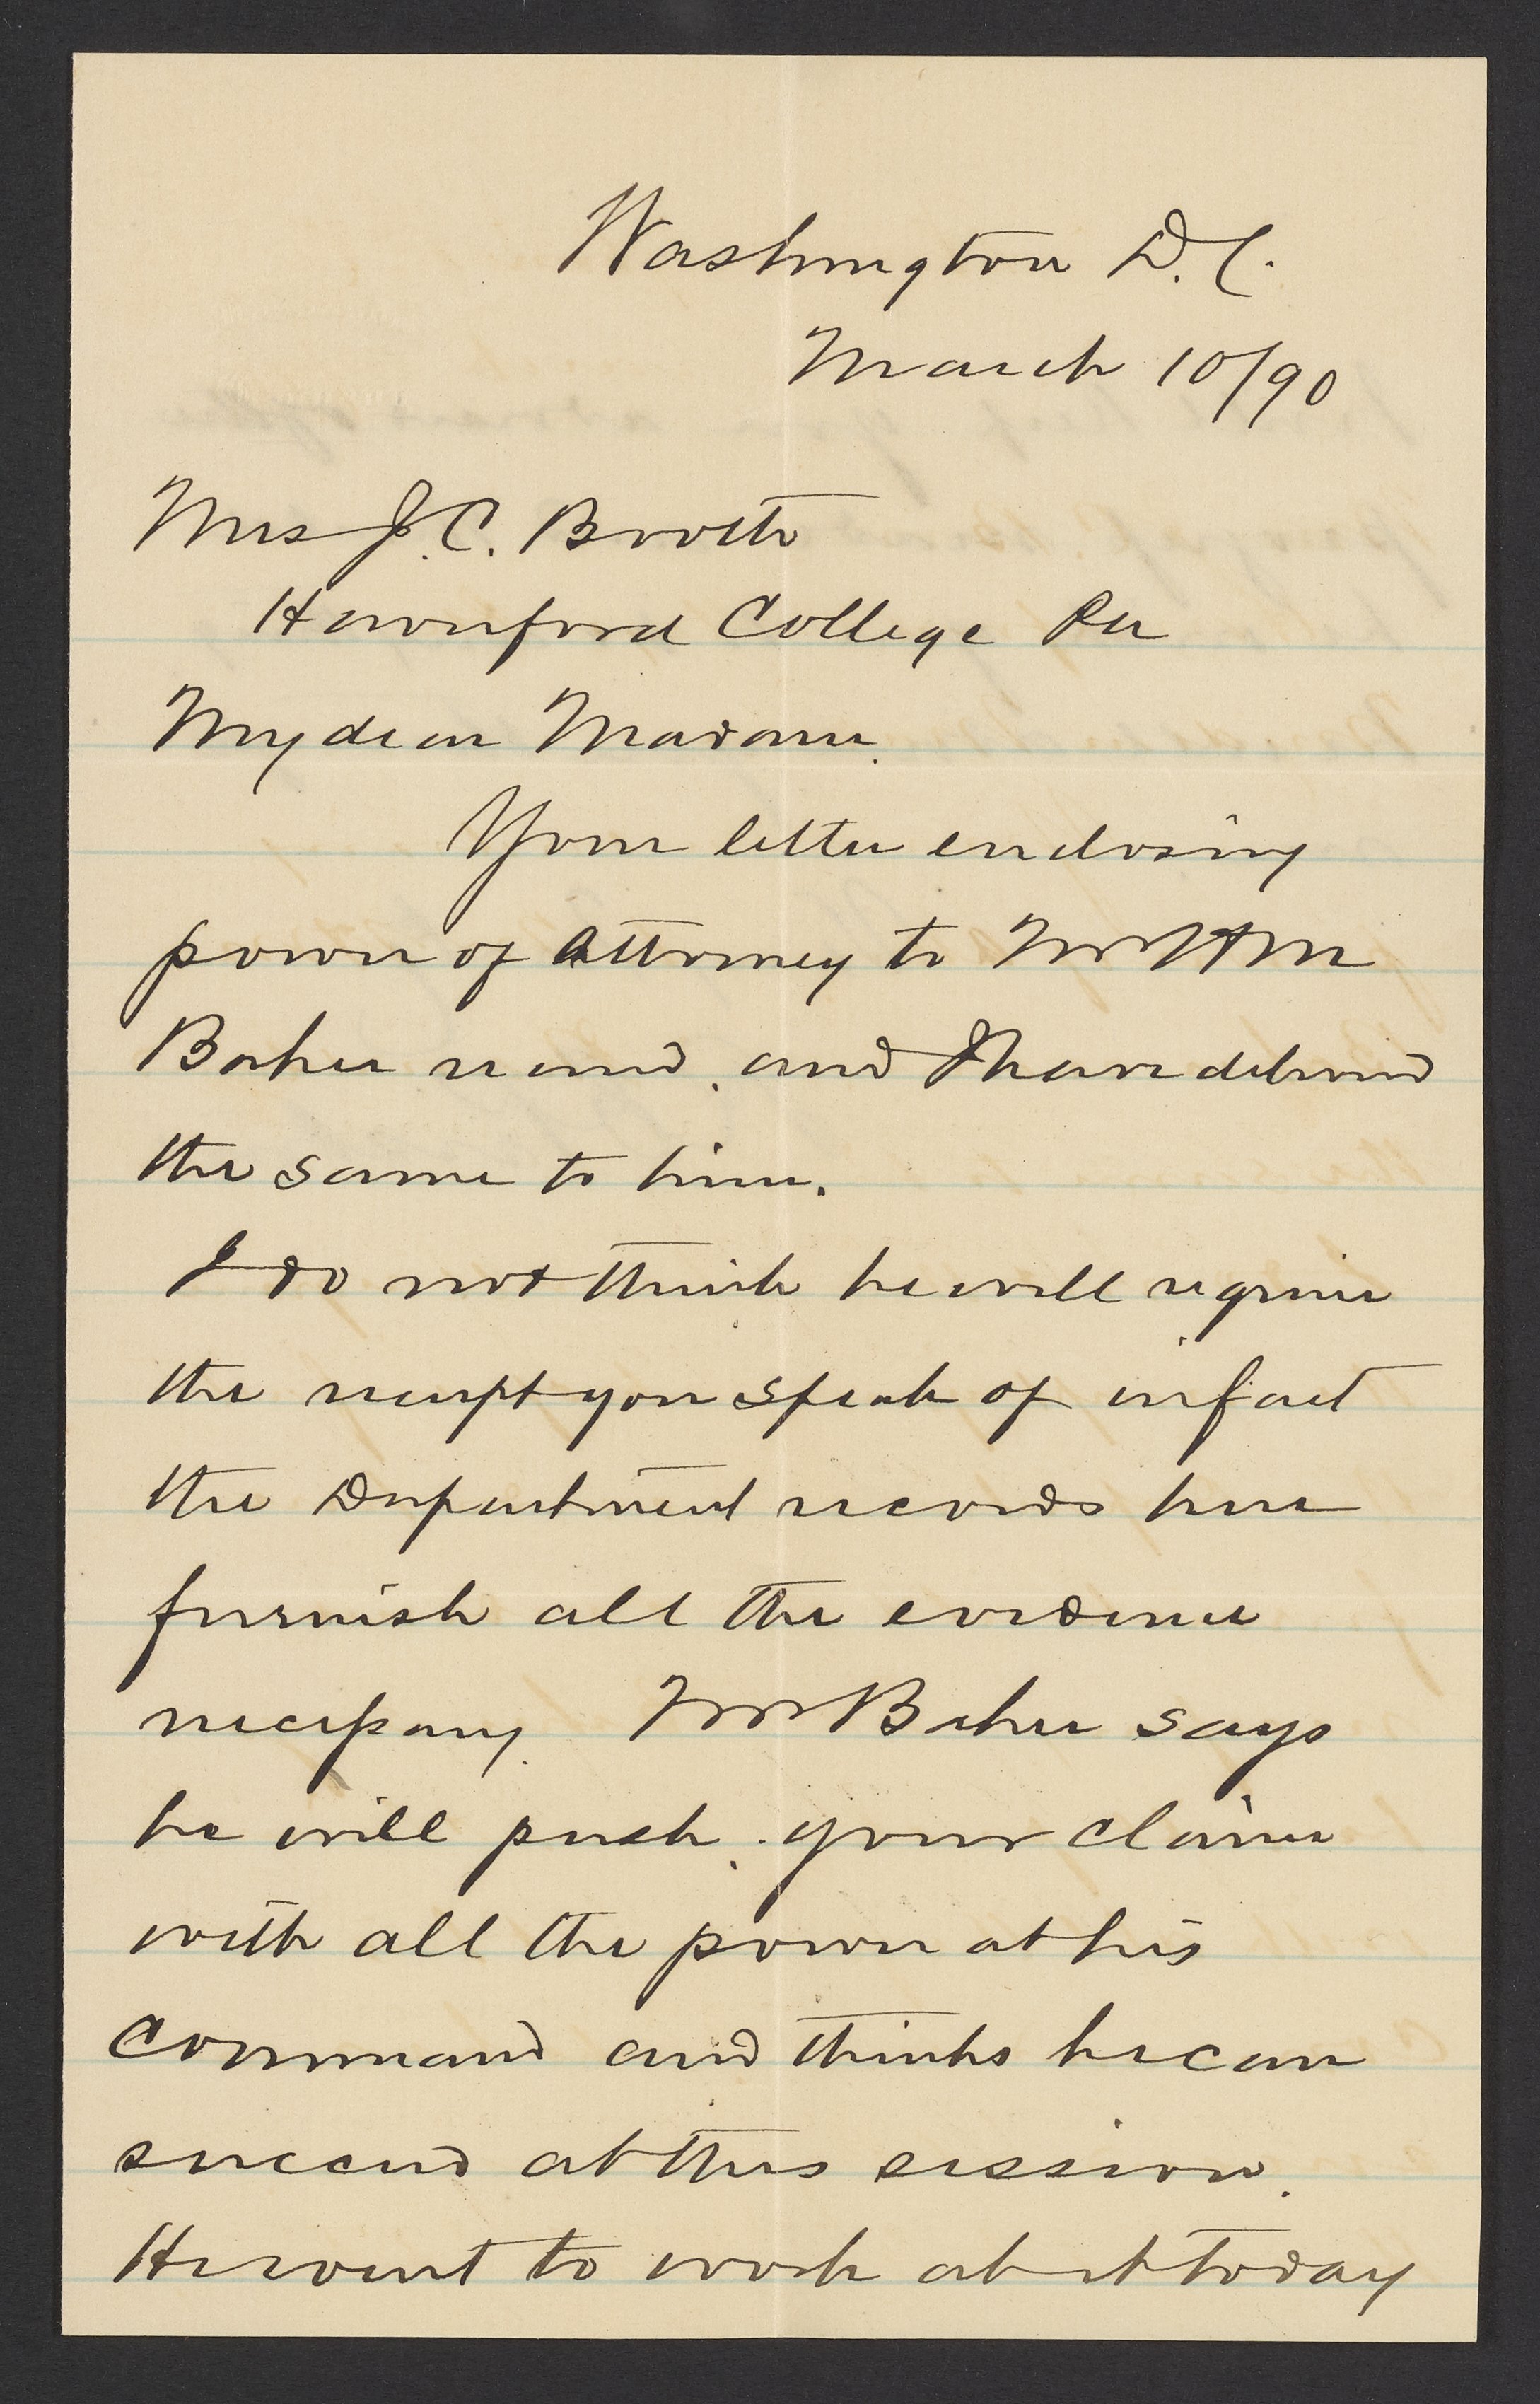 Washington D.C.
March 10/90
Mrs J. C. Booth
Haverford College Pa
My dear Madam.
Your letter enclosing
power of Attorney to Mr H M
Baker rec'd. and I have delivered
the same to him.
I do not think he will require
the receipt you speak of in fact
the Department records here
furnish all the evidence
necessary. Mr Baker says
he will push. your claim
with all the power at his
Command and thinks he can
succeed at this session.
He went to work at it today